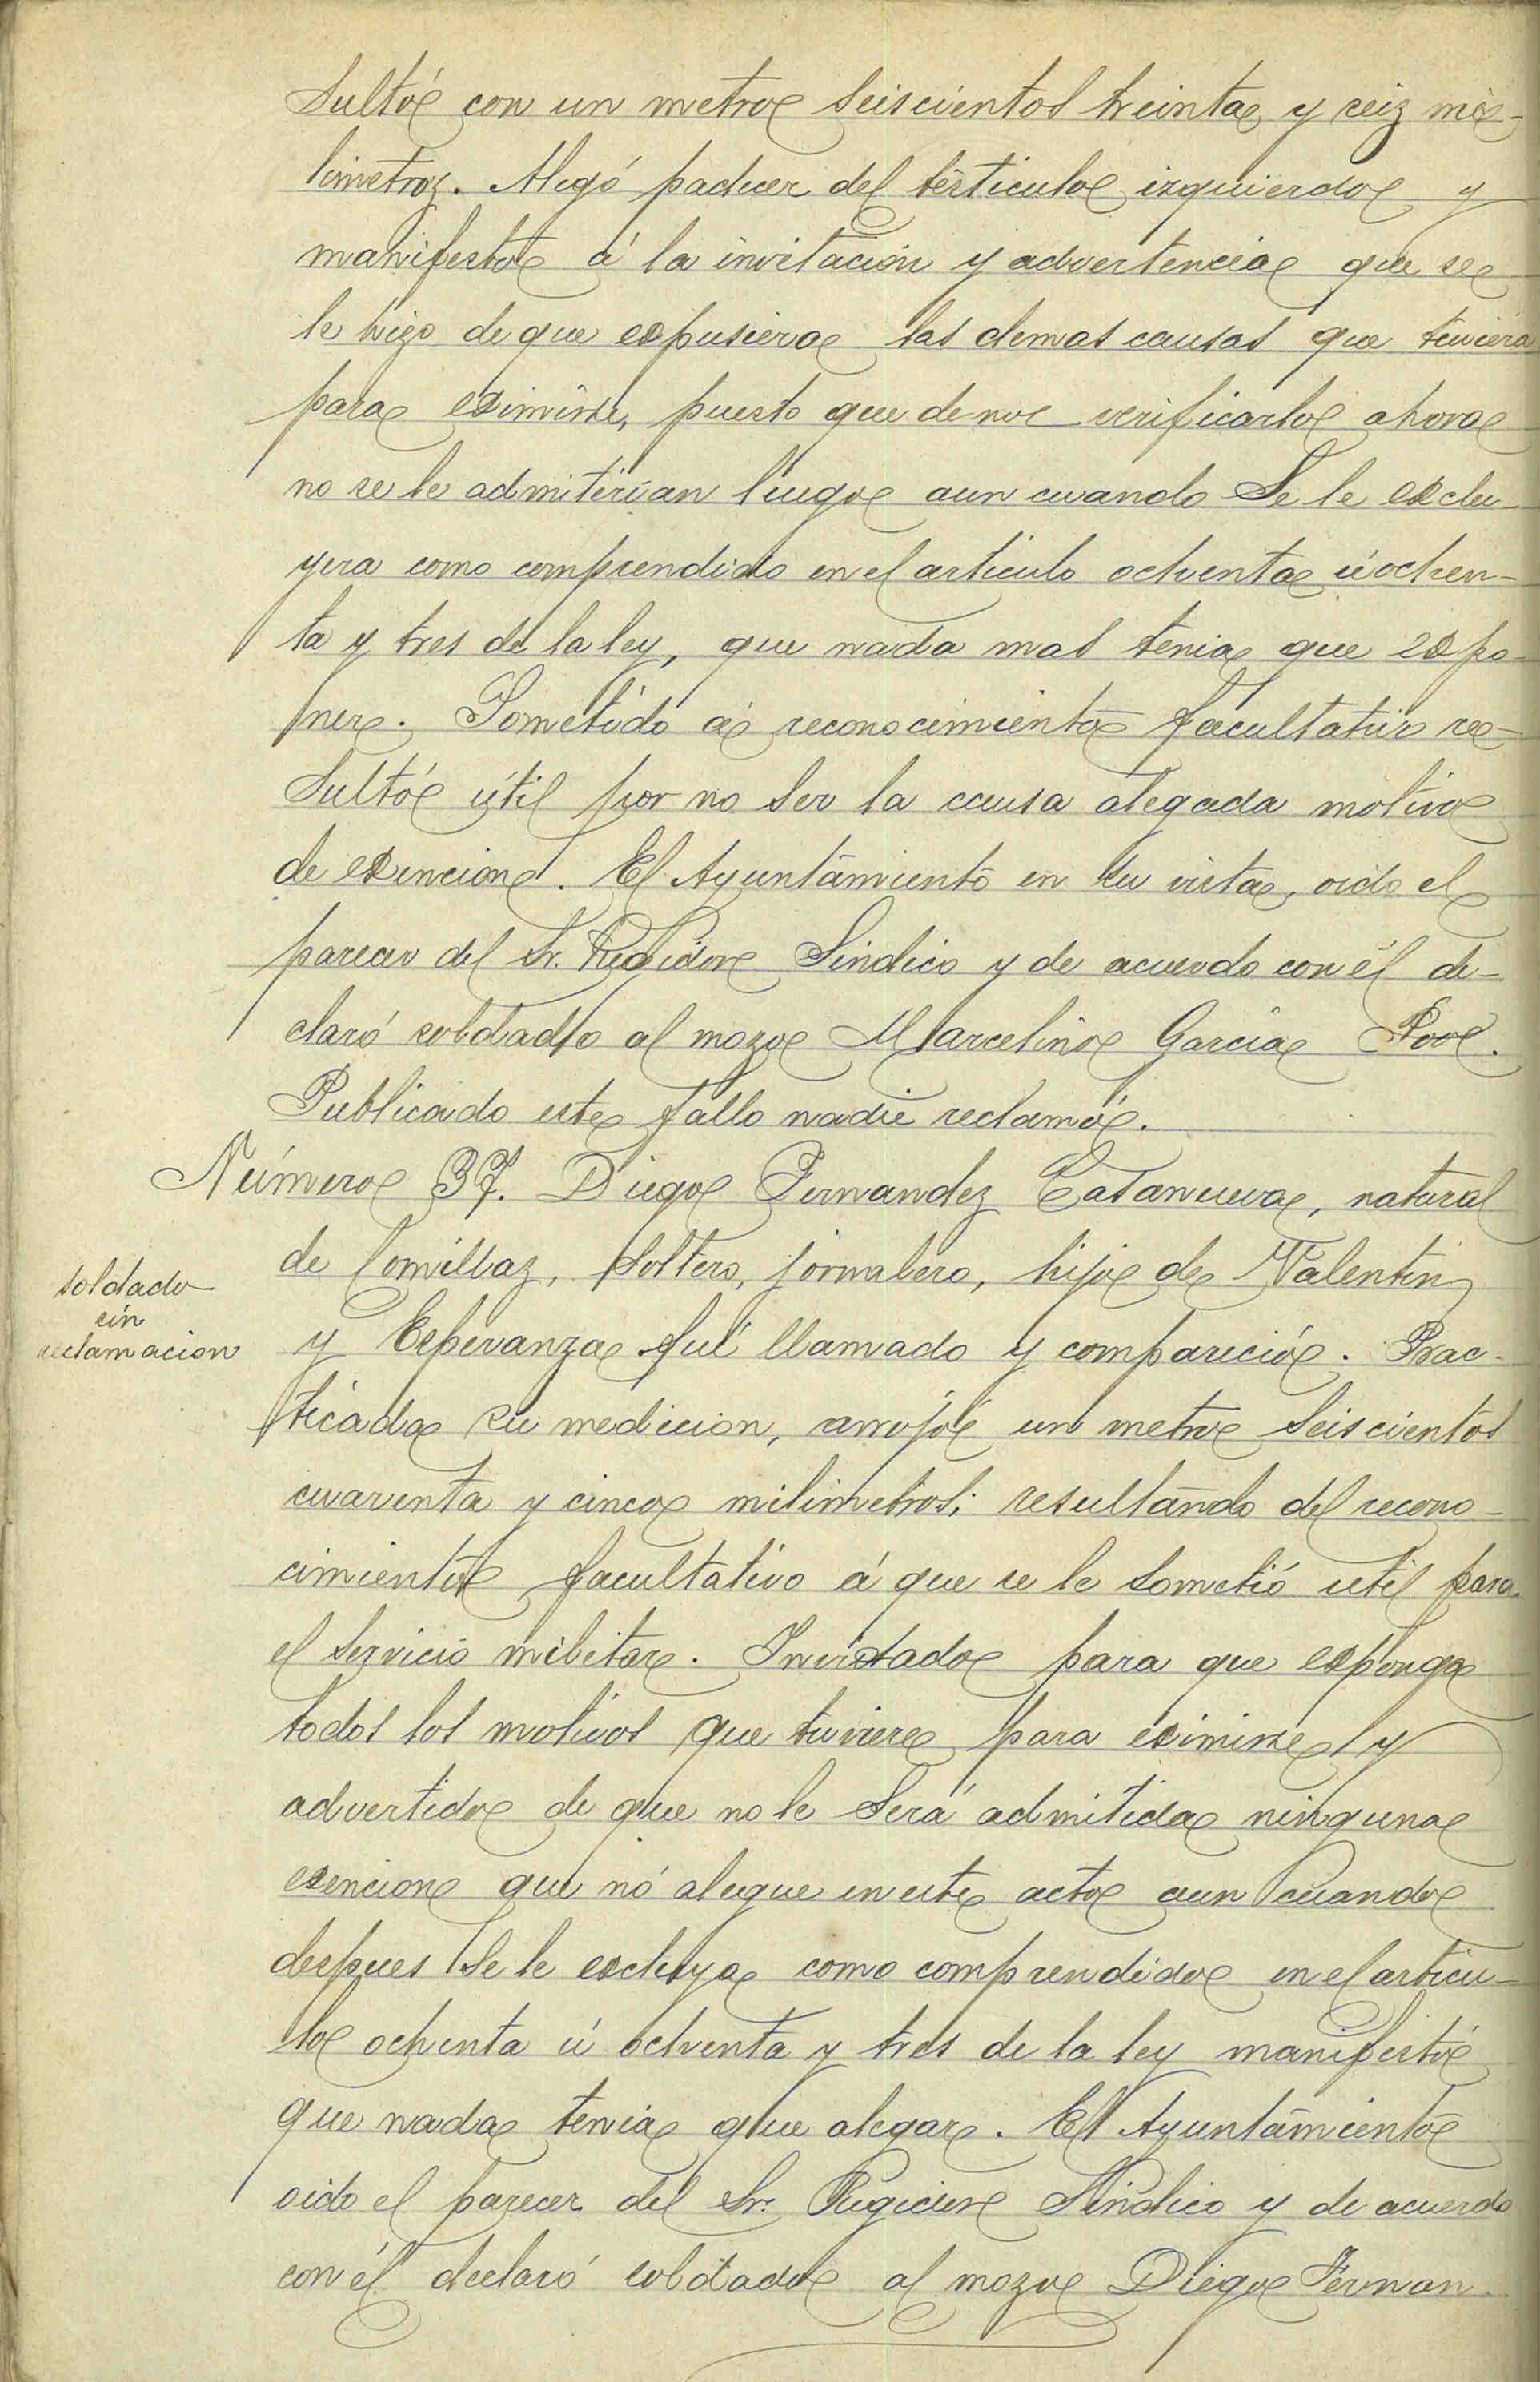 sultó con un metro seiscientos treinta y seiz mi-
limetroz. Alegó padecer del testiculo izquierdo y
manifesto á la invitacion y advertencia que se
le hizo de que expusiera las demas causas que tuviera
para eximirse, puesto que de no verificarlo ahora
no se le admiterian luego aun cuando se le exclu-
yera como comprendido en el articulo ochenta ú ochen-
ta y tres de la ley, que nada mas tenia que expo-
ner. Sometido á reconocimiento facultativo re-
sultó útil por no ser la causa alegada motivo
de exencion. El Ayuntamiento en su vista, oido el
parecer del Sr. Regidor Sindico y de acuerdo con él de-
claró soldado al mozo Marcelino Garcia Poo.
Publicado este fallo nadie reclamó.
Número 37. Diego Fernandez Casanueva, natural
de Comillaz, soltero, jornalero, hijo de Valentin
soldado
sin
reclamacion
y Esperanza fué llamado y compareció. Prac-
ticada su medicion, arrojó un metro seiscientos
cuarenta y cinco milimetros; resultando del recono-
cimiento facultativo á que se le sometió util para
el servicio militar. Invitado para que exponga
todos los motivos que tuviere para eximirse y
advertido de que no le será admitida ninguna
exencion que nó alegue en este acto aun cuando
despues se le excluya como comprendido en el articu-
lo ochenta ú ochenta y tres de la ley manifestó
que nada tenia que alegar. El Ayuntamiento
oido el parecer del Sr. Regidor Sindico y de acuerdo
con él declaró soldado al mozo Diego Fernan